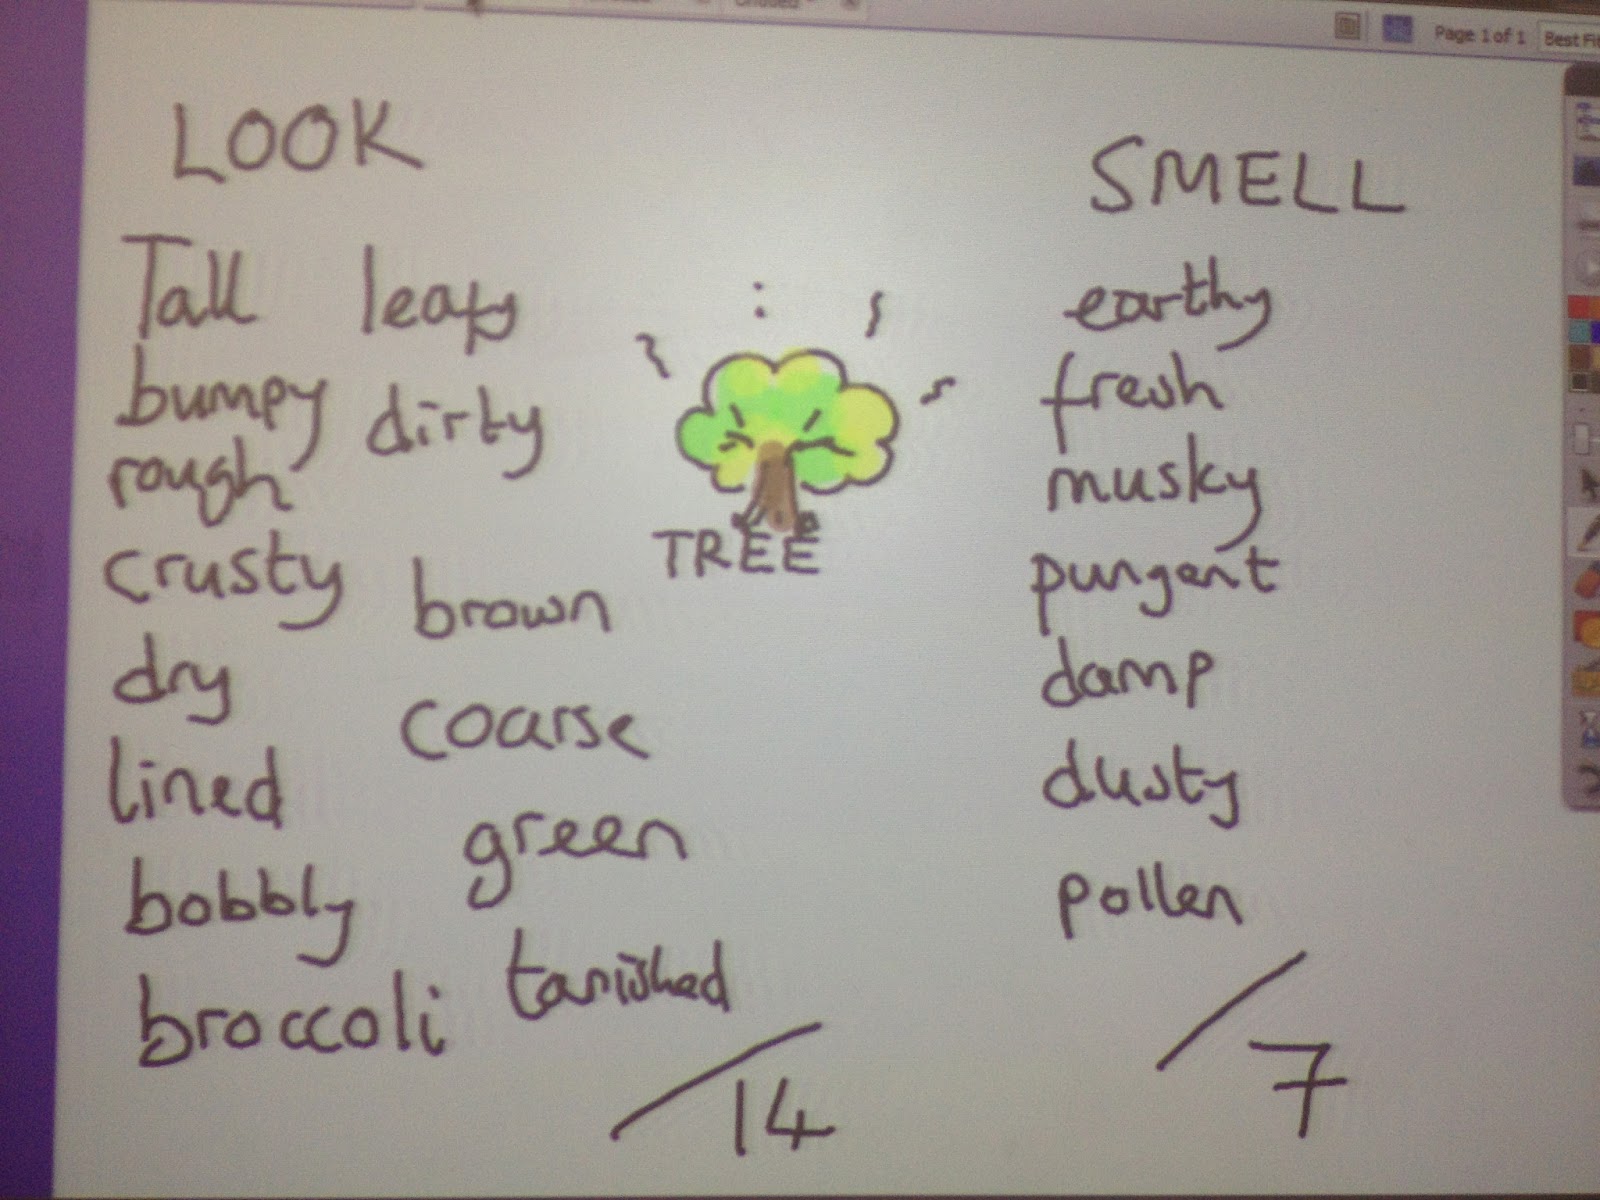 Page 1 of 1 Best Fi
LOOK
Tall leafy
bumpy dirty
rough
crusty brown
dry
coarse
lined
green
bobbly
tanished
broccoli
/14
TREE
SMELL
earthy
fresh
musky
pungent
damp
dusty
pollen
/7